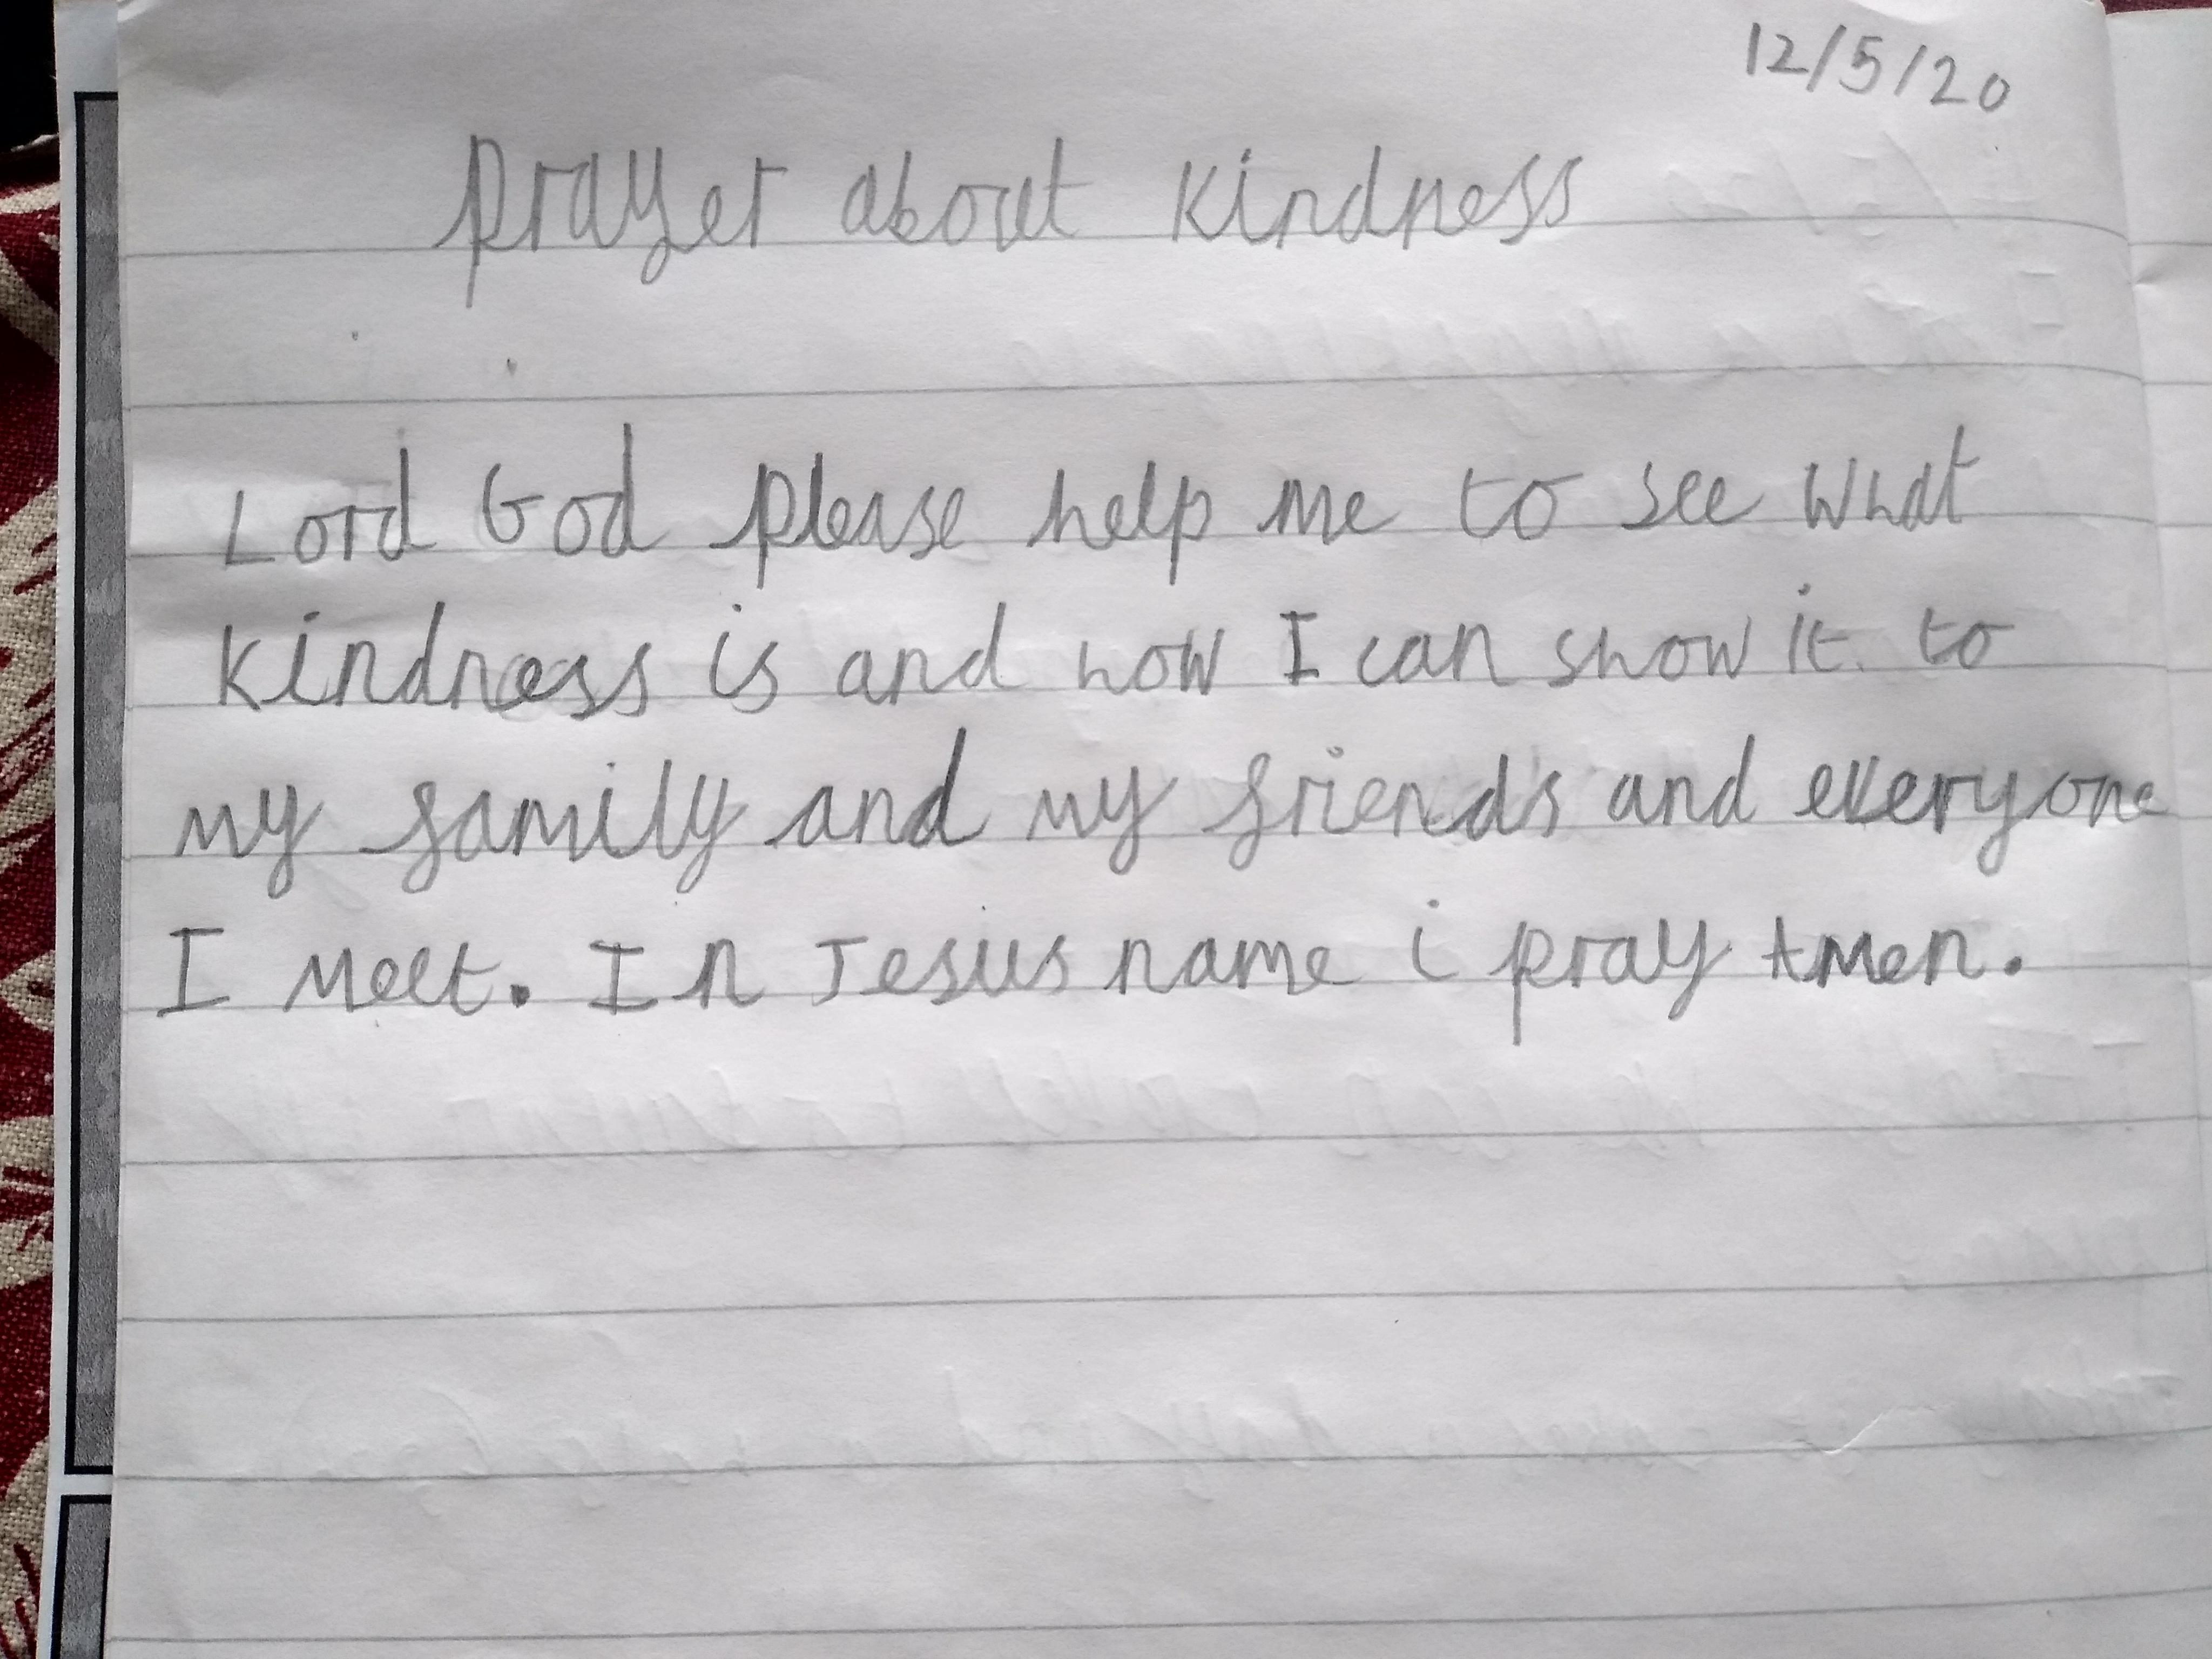 12/5/20
Prayer about Kindness
Lord God please help me to see what
Kindness is and how I can show it to
my family and my friends and everyone
I meet. In Jesus name i pray Amen.